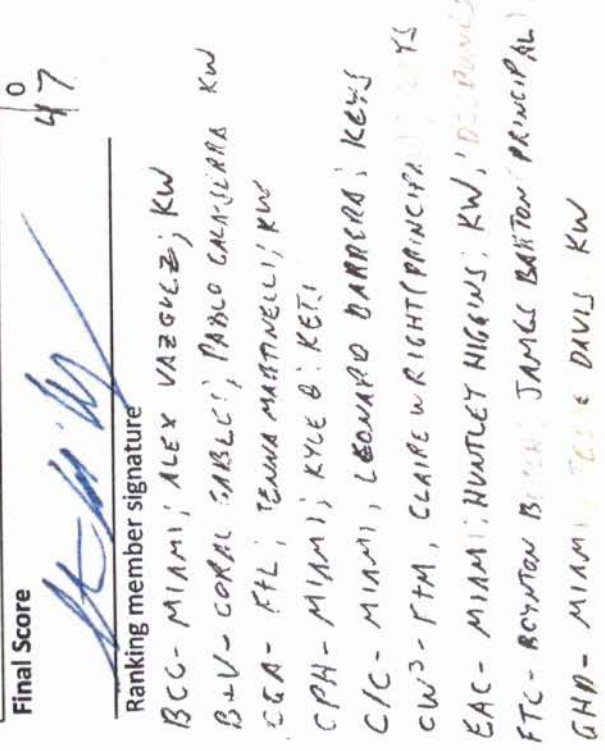 Final Score
0
47
Ranking member signature
BCC- MIAMI; ALEX VAZGUEZ; KW
B+V- CORAL GABLES; PABLO KW
CGA- FTL; JENNA MARTINELLI; KW
CPH- MIAMI; KYLE B; KEYS
C/C- MIAMI, LEONARD BARRERA; KEYS
CW3- FTM, CLAIRE WRIGHT (PRINCIPA YS
EAC- MIAMI; HUNTLEY HIGGINS; KW,
FTC- BOYNTON JAMES BARTON PRINCIPAL
GHD- MIAMI DAVIS KW